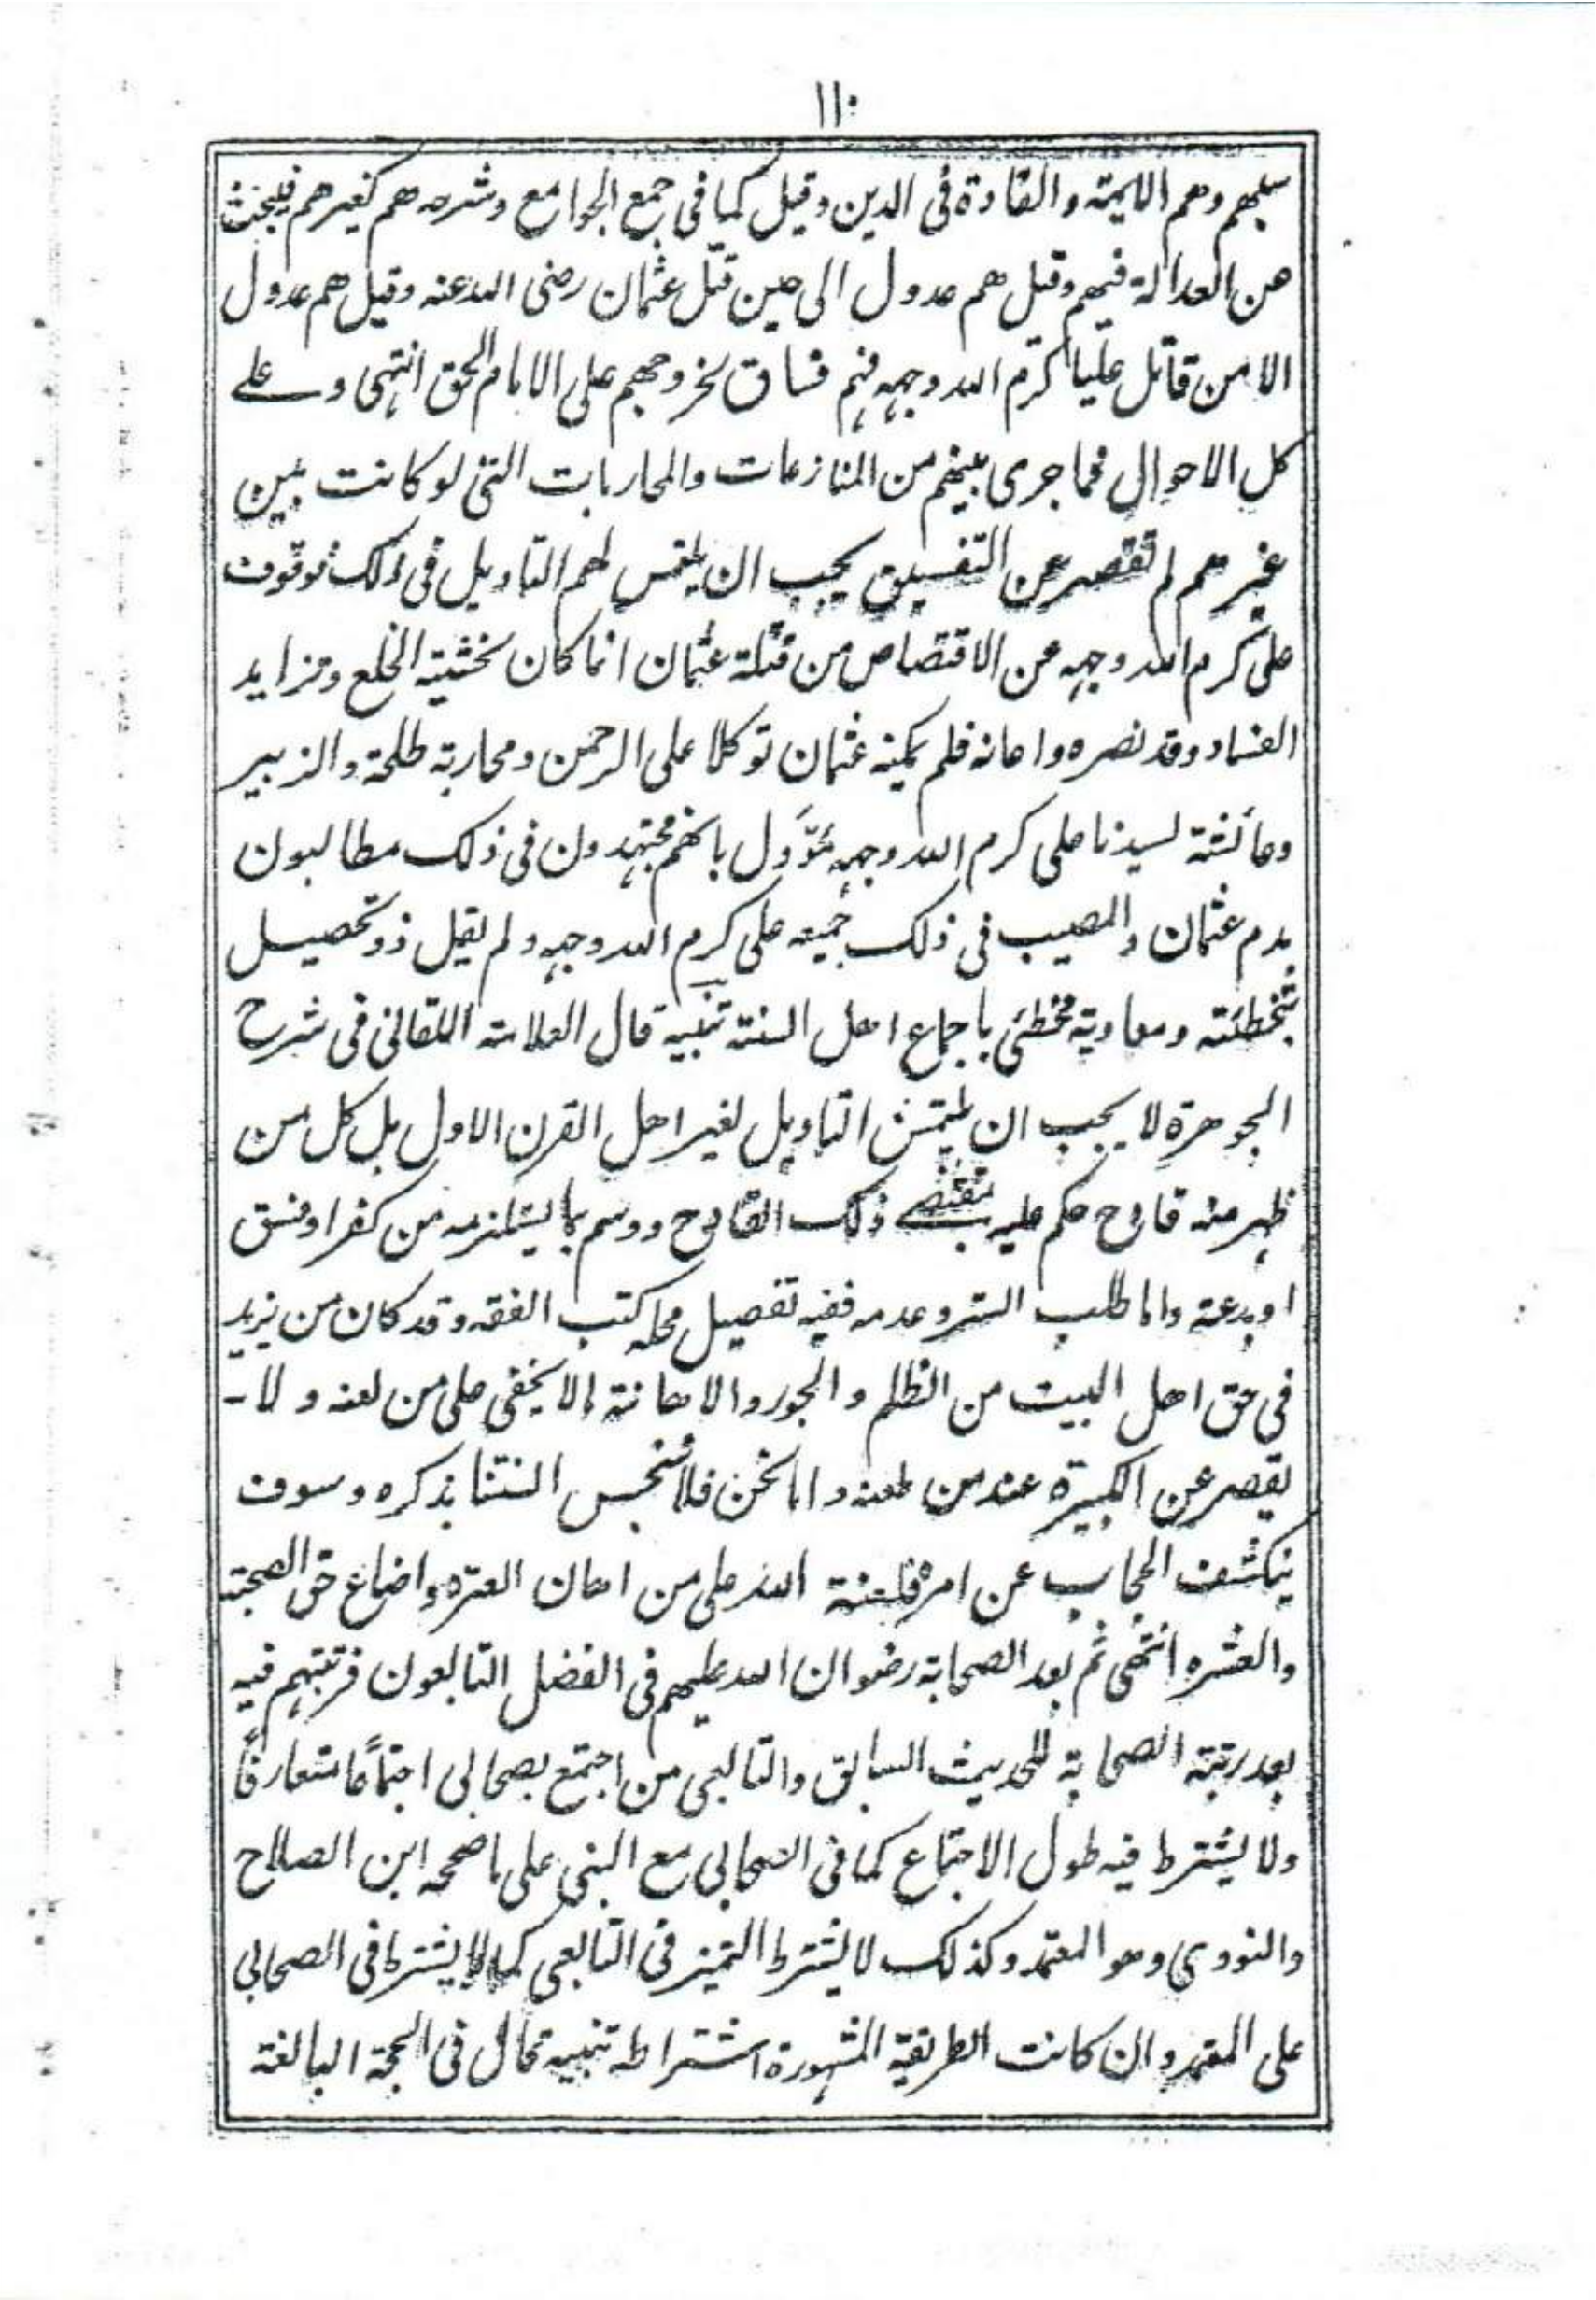 ١١٠
سبهم وهم الائمة والقادة فى الدين وقيل كما فى جمع الجوامع وشرحه هم كغيرهم فيبحث
عن العدالة فيهم وقيل هم عدول الى حين قتل عثمان رضى الله عنه وقيل هم عدول
الا من قاتل عليا كرم الله وجهه فهم فساق لخروجهم على الامام الحق انتهى وعلى
كل الاحوال فما جرى بينهم من المنازعات والمحاربات التى لو كانت بين
غيرهم لم تقصر عن التفسيق يجب ان يلتمس لهم التاويل فى ذلك فوقوف
على كرم الله وجهه عن الاقتصاص من قتلة عثمان انما كان لخشية الخلع وتزايد
الفساد وقد نصره واعانه فلم يمكنه عثمان توكلا على الرحمن ومحاربة طلحة والزبير
وعائشة لسيدنا على كرم الله وجهه مؤول بانهم مجتهدون فى ذلك مطالبون
بدم عثمان والمصيب فى ذلك جميعه على كرم الله وجهه ولم يقل ذو تحصيل
بتخطئته ومعاوية مخطئ باجماع اهل السنة تنبيه قال العلامة اللقانى فى شرح
الجوهرة لا يجب ان يلتمس التاويل لغير اهل القرن الاول بل كل من
ظهر منه قادح حكم عليه بمقتضى ذلك القادح ووسم بما يستلزمه من كفر او فسق
او بدعة واما طلب الستر وعدمه ففيه تفصيل محله كتب الفقه وقد كان من يزيد
فى حق اهل البيت من الظلم والجور والاهانة ما لا يخفى على من لعنه ولا -
يقصر عن الكبيرة عند من طعنه واما نحن فلا ننجس السنتنا بذكره وسوف
ينكشف الحجاب عن امره فلعنة الله على من اهان العترة واضاع حق الصحبة
والعشرة انتهى ثم بعد الصحابة رضوان الله عليهم فى الفضل التابعون فرتبتهم فيه
بعد رتبة الصحابة للحديث السابق والتابعى من اجتمع بصحابى اجتماعًا متعارفًا
ولا يشترط فيه طول الاجتماع كما فى الصحابى مع النبى على ما صححه ابن الصلاح
والنووى وهو المعتمد وكذلك لا يشترط التميز فى التابعى كما لا يشترط فى الصحابى
على المعتمد وان كانت الطريقة المشهورة اشتراطه تنبيه قال فى الحجة البالغة